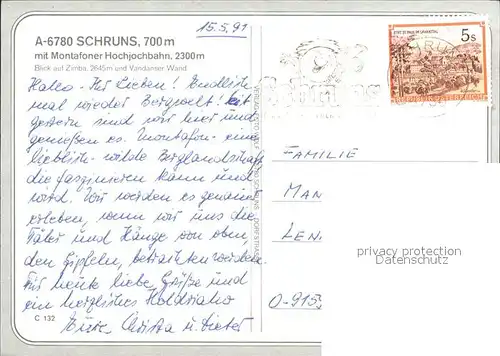 15.5.91
A-6780 SCHRUNS, 700 m
mit Montafoner Hochjochbahn, 2300m
Blick auf Zimba, 2645m und Vandanser Wand
Hallo - Ihr Lieben! Endlich
mal wieder Bergwelt! Seit
gestern sind wir hier und
genießen es. Montafon - eine
lieblich-wilde Berglandschaft
die faszinieren kann und
wird. Wir werden es genauer
erleben, wenn wir uns die
Täler und Hänge von oben,
den Gipfeln, betrachten werden.
Für heute liebe Grüße und
ein herzliches Holdriaho
Eure Christa u. Dieter
C 132
5 s
REPUBLIK ÖSTERREICH
FAMILIE
MAN
LEN
O-915
privacy protection
Datenschutz